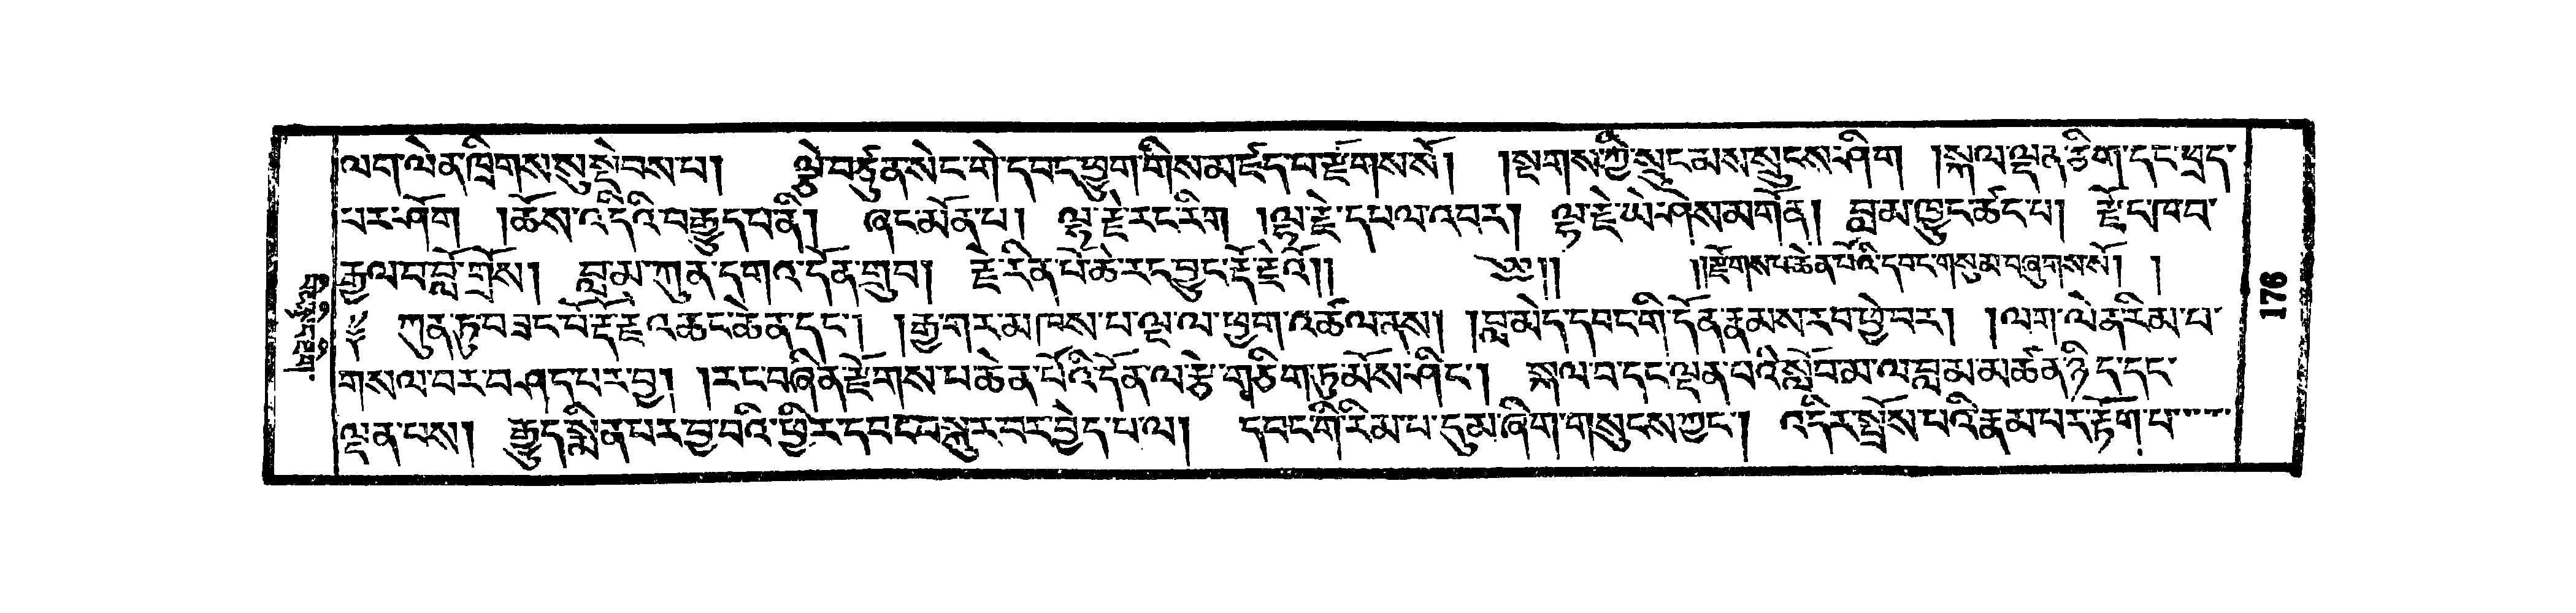 ལག་ལེན་ཁྲིགས་སུ་སྡེབས་པ། ལྕེ་བཙུན་སེང་གེ་དབང་ཕྱུག་གིས་མཛད་པ་རྫོགས་སོ། །སྔགས་ཀྱི་སྲུང་མས་སྲུངས་ཤིག །སྐལ་ལྡན་ཅིག་དང་ཕྲད་
པར་ཤོག །ཆོས་འདིའི་བརྒྱུད་པ་ནི། ཞང་མོན་པ། ལྷ་རྗེ་རང་རིག །ལྷ་རྗེ་དཔལ་འབར། ལྷ་རྗེ་ཡེ་ཤེས་མགོན། བླ་མ་ཁྱུང་ཚང་པ། རྫོང་ཁབ་
རྒྱལ་བ་བློ་གྲོས། བླ་མ་ཀུན་དགའ་དོན་གྲུབ། རྗེ་རིན་པོ་ཆེ་རང་བྱུང་རྡོ་རྗེའོ།། ༄།། །།རྫོགས་པ་ཆེན་པོའི་དབང་གསུམ་བཞུགས་སོ། །
༄ ཀུན་ཏུ་བཟང་པོ་རྡོ་རྗེ་འཆང་ཆེན་དང་། །རྒྱ་གར་མཁས་པ་ལྔ་ལ་ཕྱག་འཚལ་ནས། །བླ་མེད་དབང་གི་དོན་རྣམས་རབ་ཕྱེ་བར། །ལག་ལེན་རིམ་པ་
གསལ་བར་བཤད་པར་བྱ། །རང་བཞིན་རྫོགས་པ་ཆེན་པོའི་དོན་ལ་རྩེ་གཅིག་ཏུ་མོས་ཤིང་། སྐལ་བ་དང་ལྡན་པའི་སློབ་མ་ལ་བླ་མ་མཚན་ཉིད་དང་
ལྡན་པས། རྒྱུད་སྨིན་པར་བྱ་བའི་ཕྱིར་དབང་བསྐུར་བར་བྱེད་པ་ལ། དབང་གི་རིམ་པ་དུ་མ་ཞིག་གསུངས་ཀྱང་། འདིར་སྤྲོས་པའི་རྣམ་པར་རྟོག་པ་
176